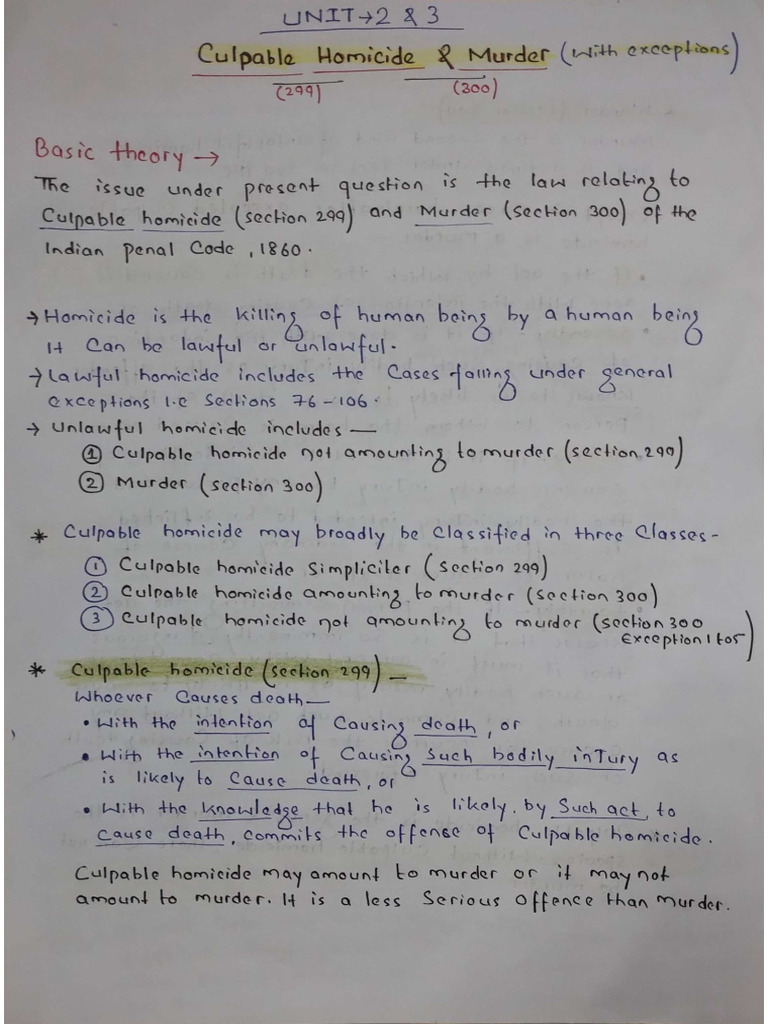 UNIT→2 & 3
Culpable Homicide & Murder (With exceptions)
(299) (300)
Basic theory →
The issue under present question is the law relating to
Culpable homicide (section 299) and Murder (section 300) of the
Indian penal Code, 1860.
→ Homicide is the killing of human being by a human being
It can be lawful or unlawful.
→ Lawful homicide includes the Cases falling under general
exceptions i.e Sections 76-106.
→ Unlawful homicide includes —
① Culpable homicide not amounting to murder (section 299)
② Murder (section 300)
* Culpable homicide may broadly be classified in three Classes-
① Culpable homicide Simpliciter (section 299)
② Culpable homicide amounting to murder (section 300)
③ Culpable homicide not amounting to murder (section 300
Exception 1 to 5)
* Culpable homicide (section 299) —
Whoever Causes death —
• With the intention of Causing death, or
• With the intention of Causing Such bodily inTury as
is likely to Cause death, or
• With the knowledge that he is likely by Such act, to
cause death, commits the offense of Culpable homicide.
Culpable homicide may amount to murder or it may not
amount to murder. It is a less Serious offence than murder.